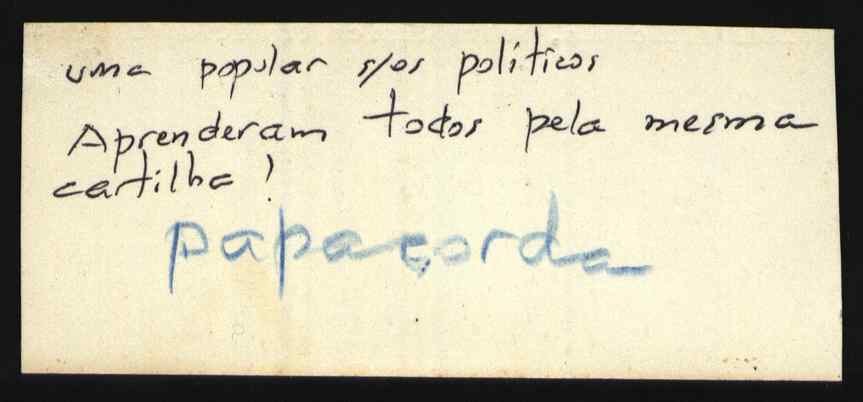 uma popular s/os políticos
Aprenderam todos pela mesma
cartilha!
papaçorda